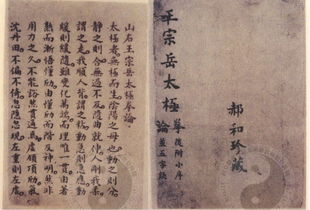 郝和珍藏
王宗岳太極拳論
後附小序
並五字訣
山右王宗岳太極拳論
太極者無極而生陰陽之母也動之則分
靜之則合無過不及隨曲就伸人剛我柔
謂之走我順人背謂之粘動急則急應動
緩則緩隨雖變化萬端而理唯一貫由著
熟而漸悟懂勁由懂勁而階及神明然非
用力之久不能豁然貫通焉虛領頂勁氣
沉丹田不偏不倚忽隱忽現左重則左虛